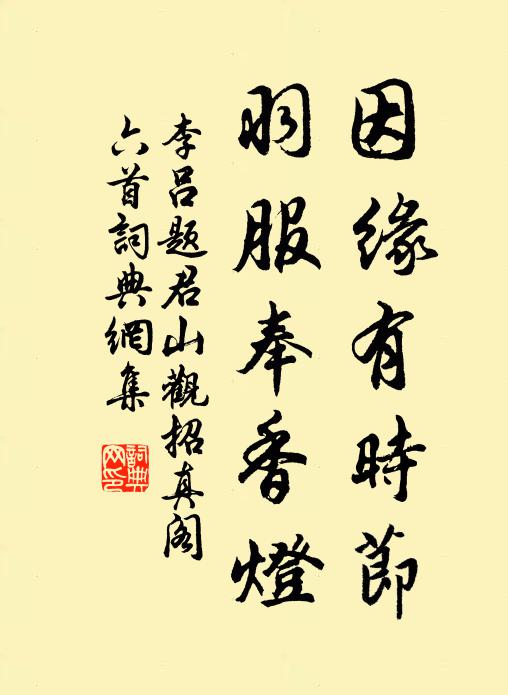 因緣有時節
羽服奉香燈
李吕题君山觀招真阁
六首詞典網集
詞典
网印